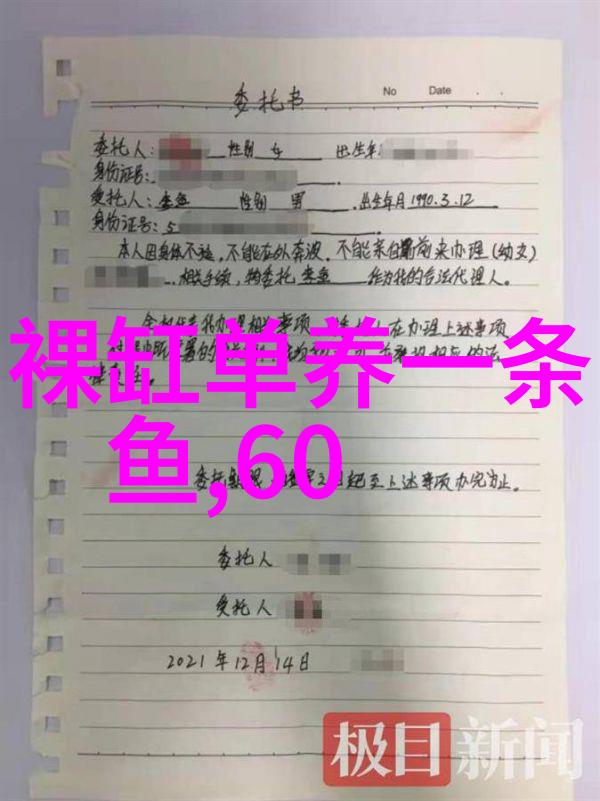 No Date
委托书
委托人: 性别 女 出生年
身份证号:
受托人: 李奎 性别 男 .出生年月1990.3.12
身份证号: 5
本人因身体不适,不能在外奔波,不能亲自前来办理(幼女)
.相关手续,特委托 李奎 作为我的合法代理人。
全权代表我办理相关事项 在办理上述事项
裸缸单养一条
鱼,60
委托期限 起至上述事项办完为止。
委托人
受托人
2021年12月14日
极目新闻